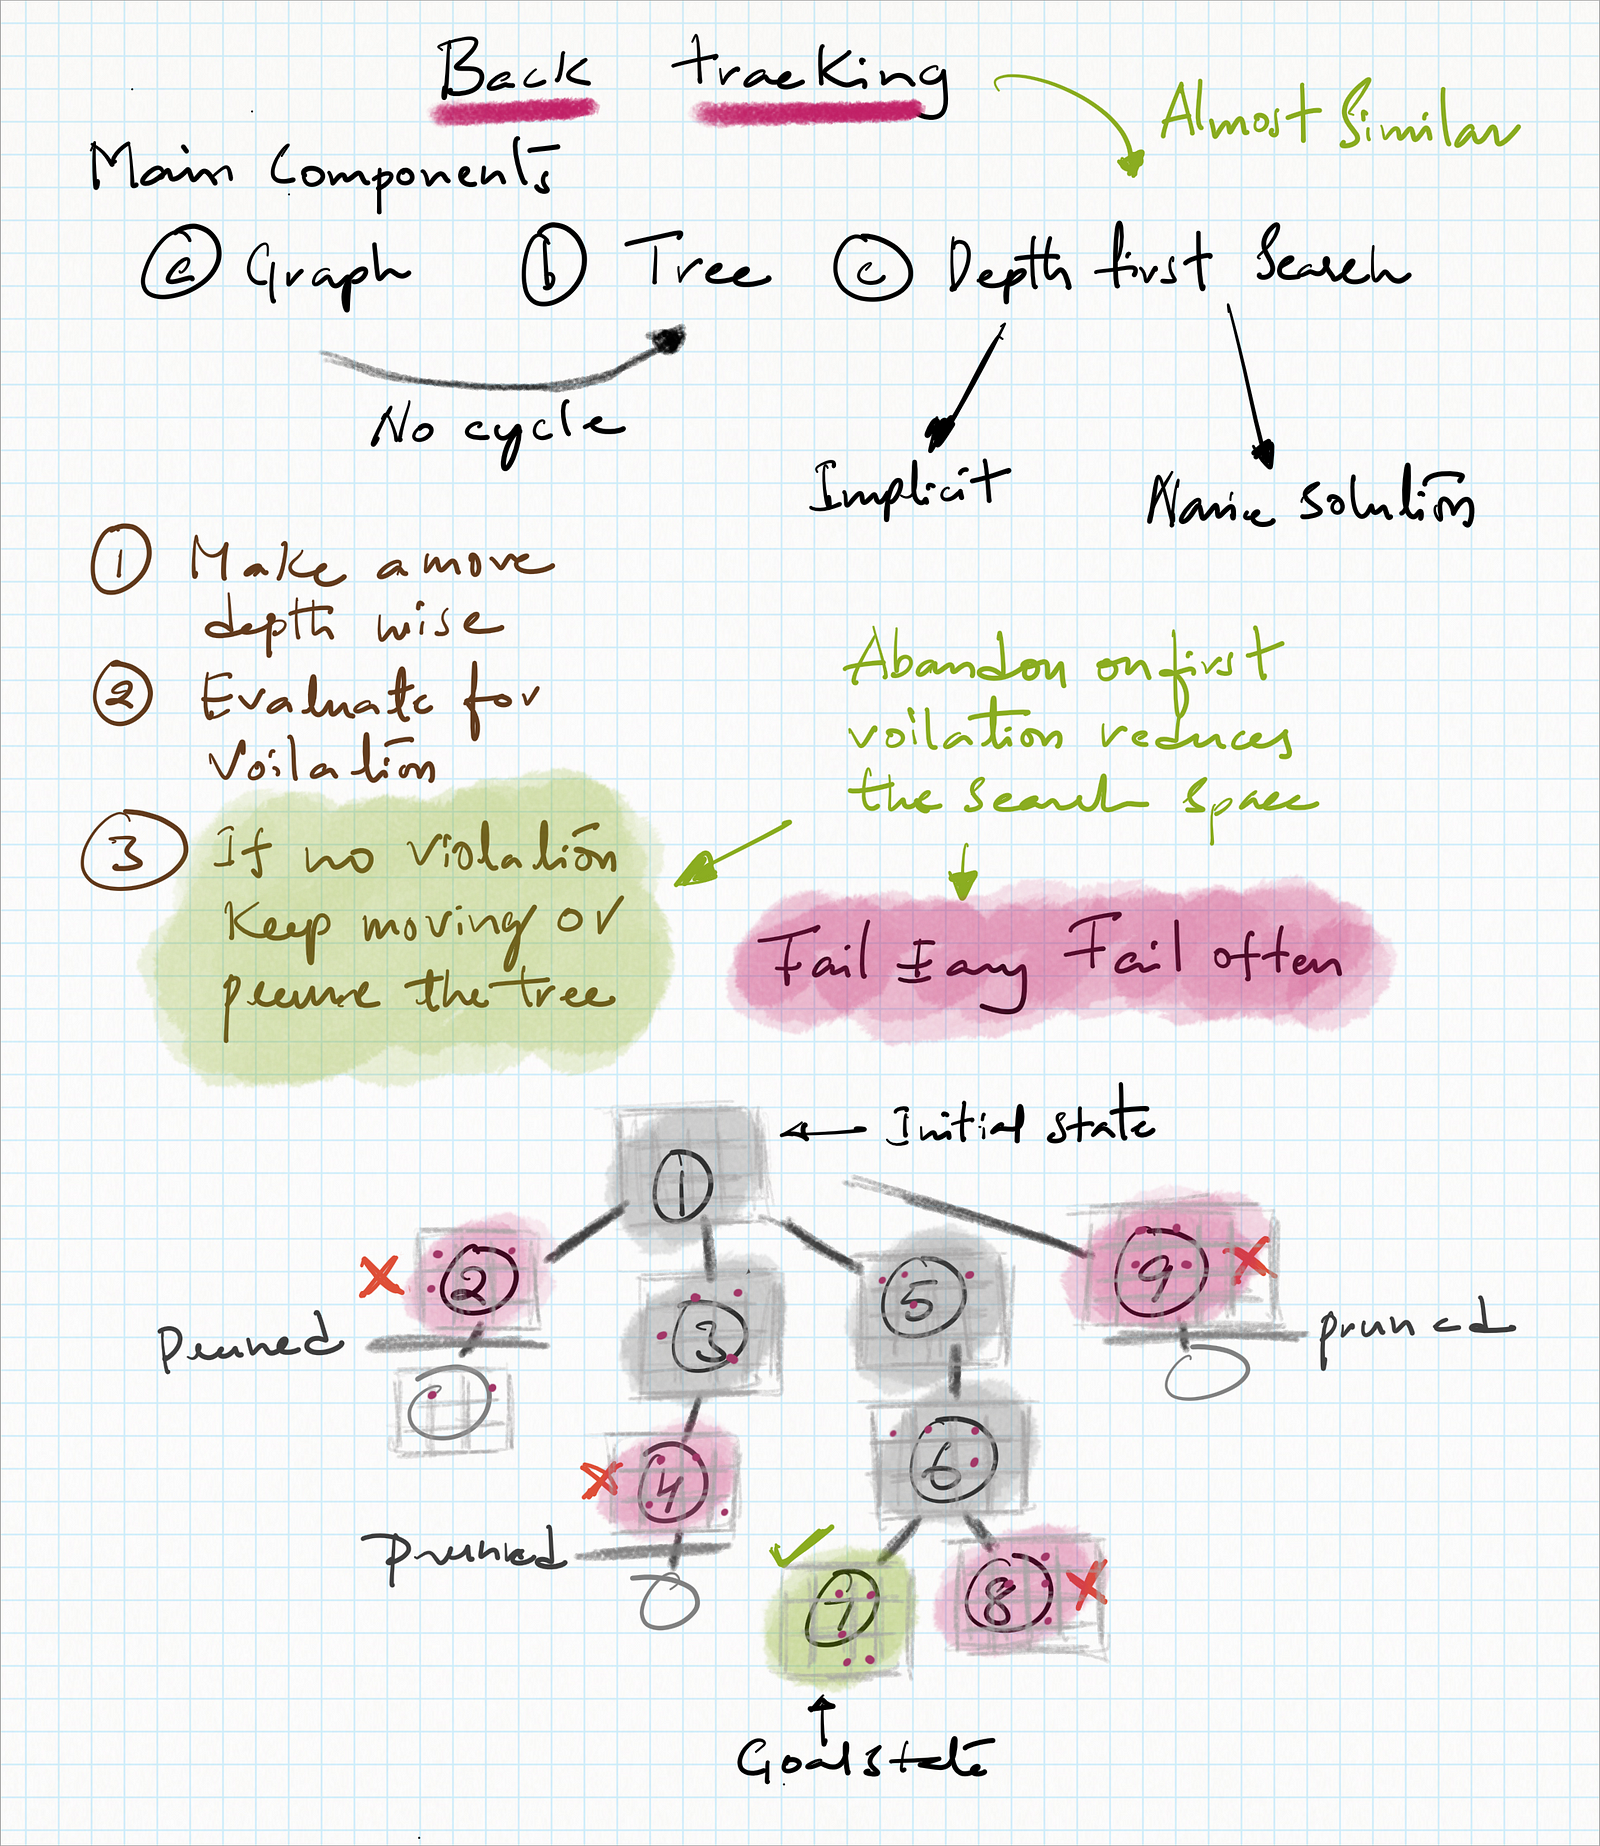 Back tracking
Almost Similar
Main Components
a Graph b Tree c Depth first Search
No cycle
Implicit
Naive solution
1 Make a move
depth wise
2 Evaluate for
Voilation
3 If no violation
Keep moving or
prune the tree
Abandon on first
voilation reduces
the search space
Fail Eary Fail often
Initial state
1
2
3
5
9
Pruned
pruned
4
6
pruned
7
8
Goal state